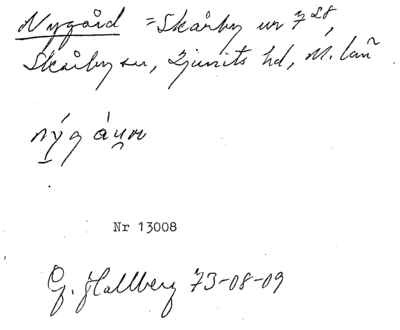 Nygård = Skårby nr 7²⁸,
Skårby sn, Ljunits hd, M. län
nýg áu̯ın
Nr 13008
G. Hallberg 73-08-09